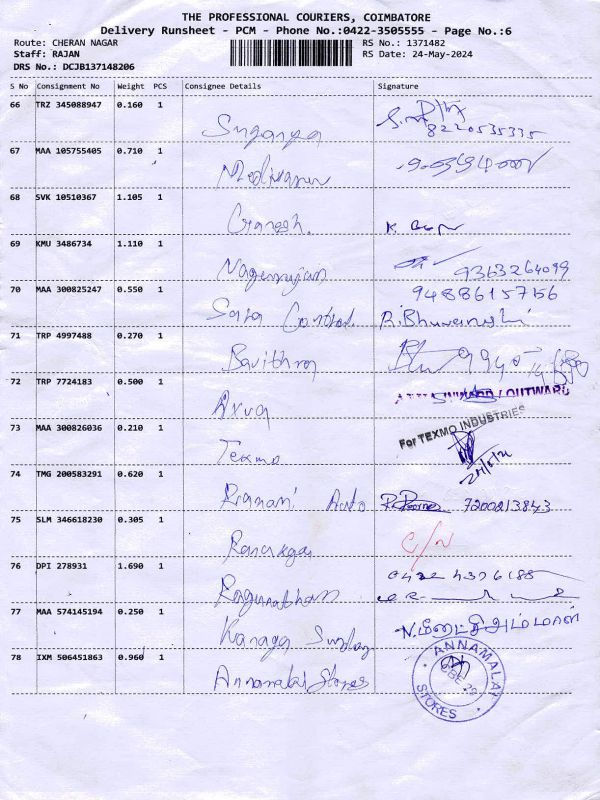 THE PROFESSIONAL COURIERS, COIMBATORE
Delivery Runsheet - PCM - Phone No.:0422-3505555 - Page No.:6
Route: CHERAN NAGAR RS No.: 1371482
Staff: RAJAN RS Date: 24-May-2024
DRS No.: DCJB137148206
S No Consignment No Weight PCS Consignee Details Signature
66 TRZ 345088947 0.160 1
Suganya 8220535335
67 MAA 105755405 0.710 1
68 SVK 10510367 1.105 1
Ganesh. K.
69 KMU 3486734 1.110 1
9363264099
70 MAA 300825247 0.550 1
9488615756
Sara Control. R.
71 TRP 4997488 0.270 1
Bavithra
72 TRP 7724183 0.500 1
INWARD / OUTWARD
73 MAA 300826036 0.210 1
For TEXMO INDUSTRIES
Texmo
74 TMG 200583291 0.620 1
Auto 7200213843
75 SLM 346618230 0.305 1
76 DPI 278931 1.690 1
0422 4376188
Ragunathan
77 MAA 574145194 0.250 1
Kanaga N. மீனாட்சி அம்மாள்
78 IXM 506451863 0.960 1
Annamalai Stores
ANNAMALAI
CBE-29
STORES